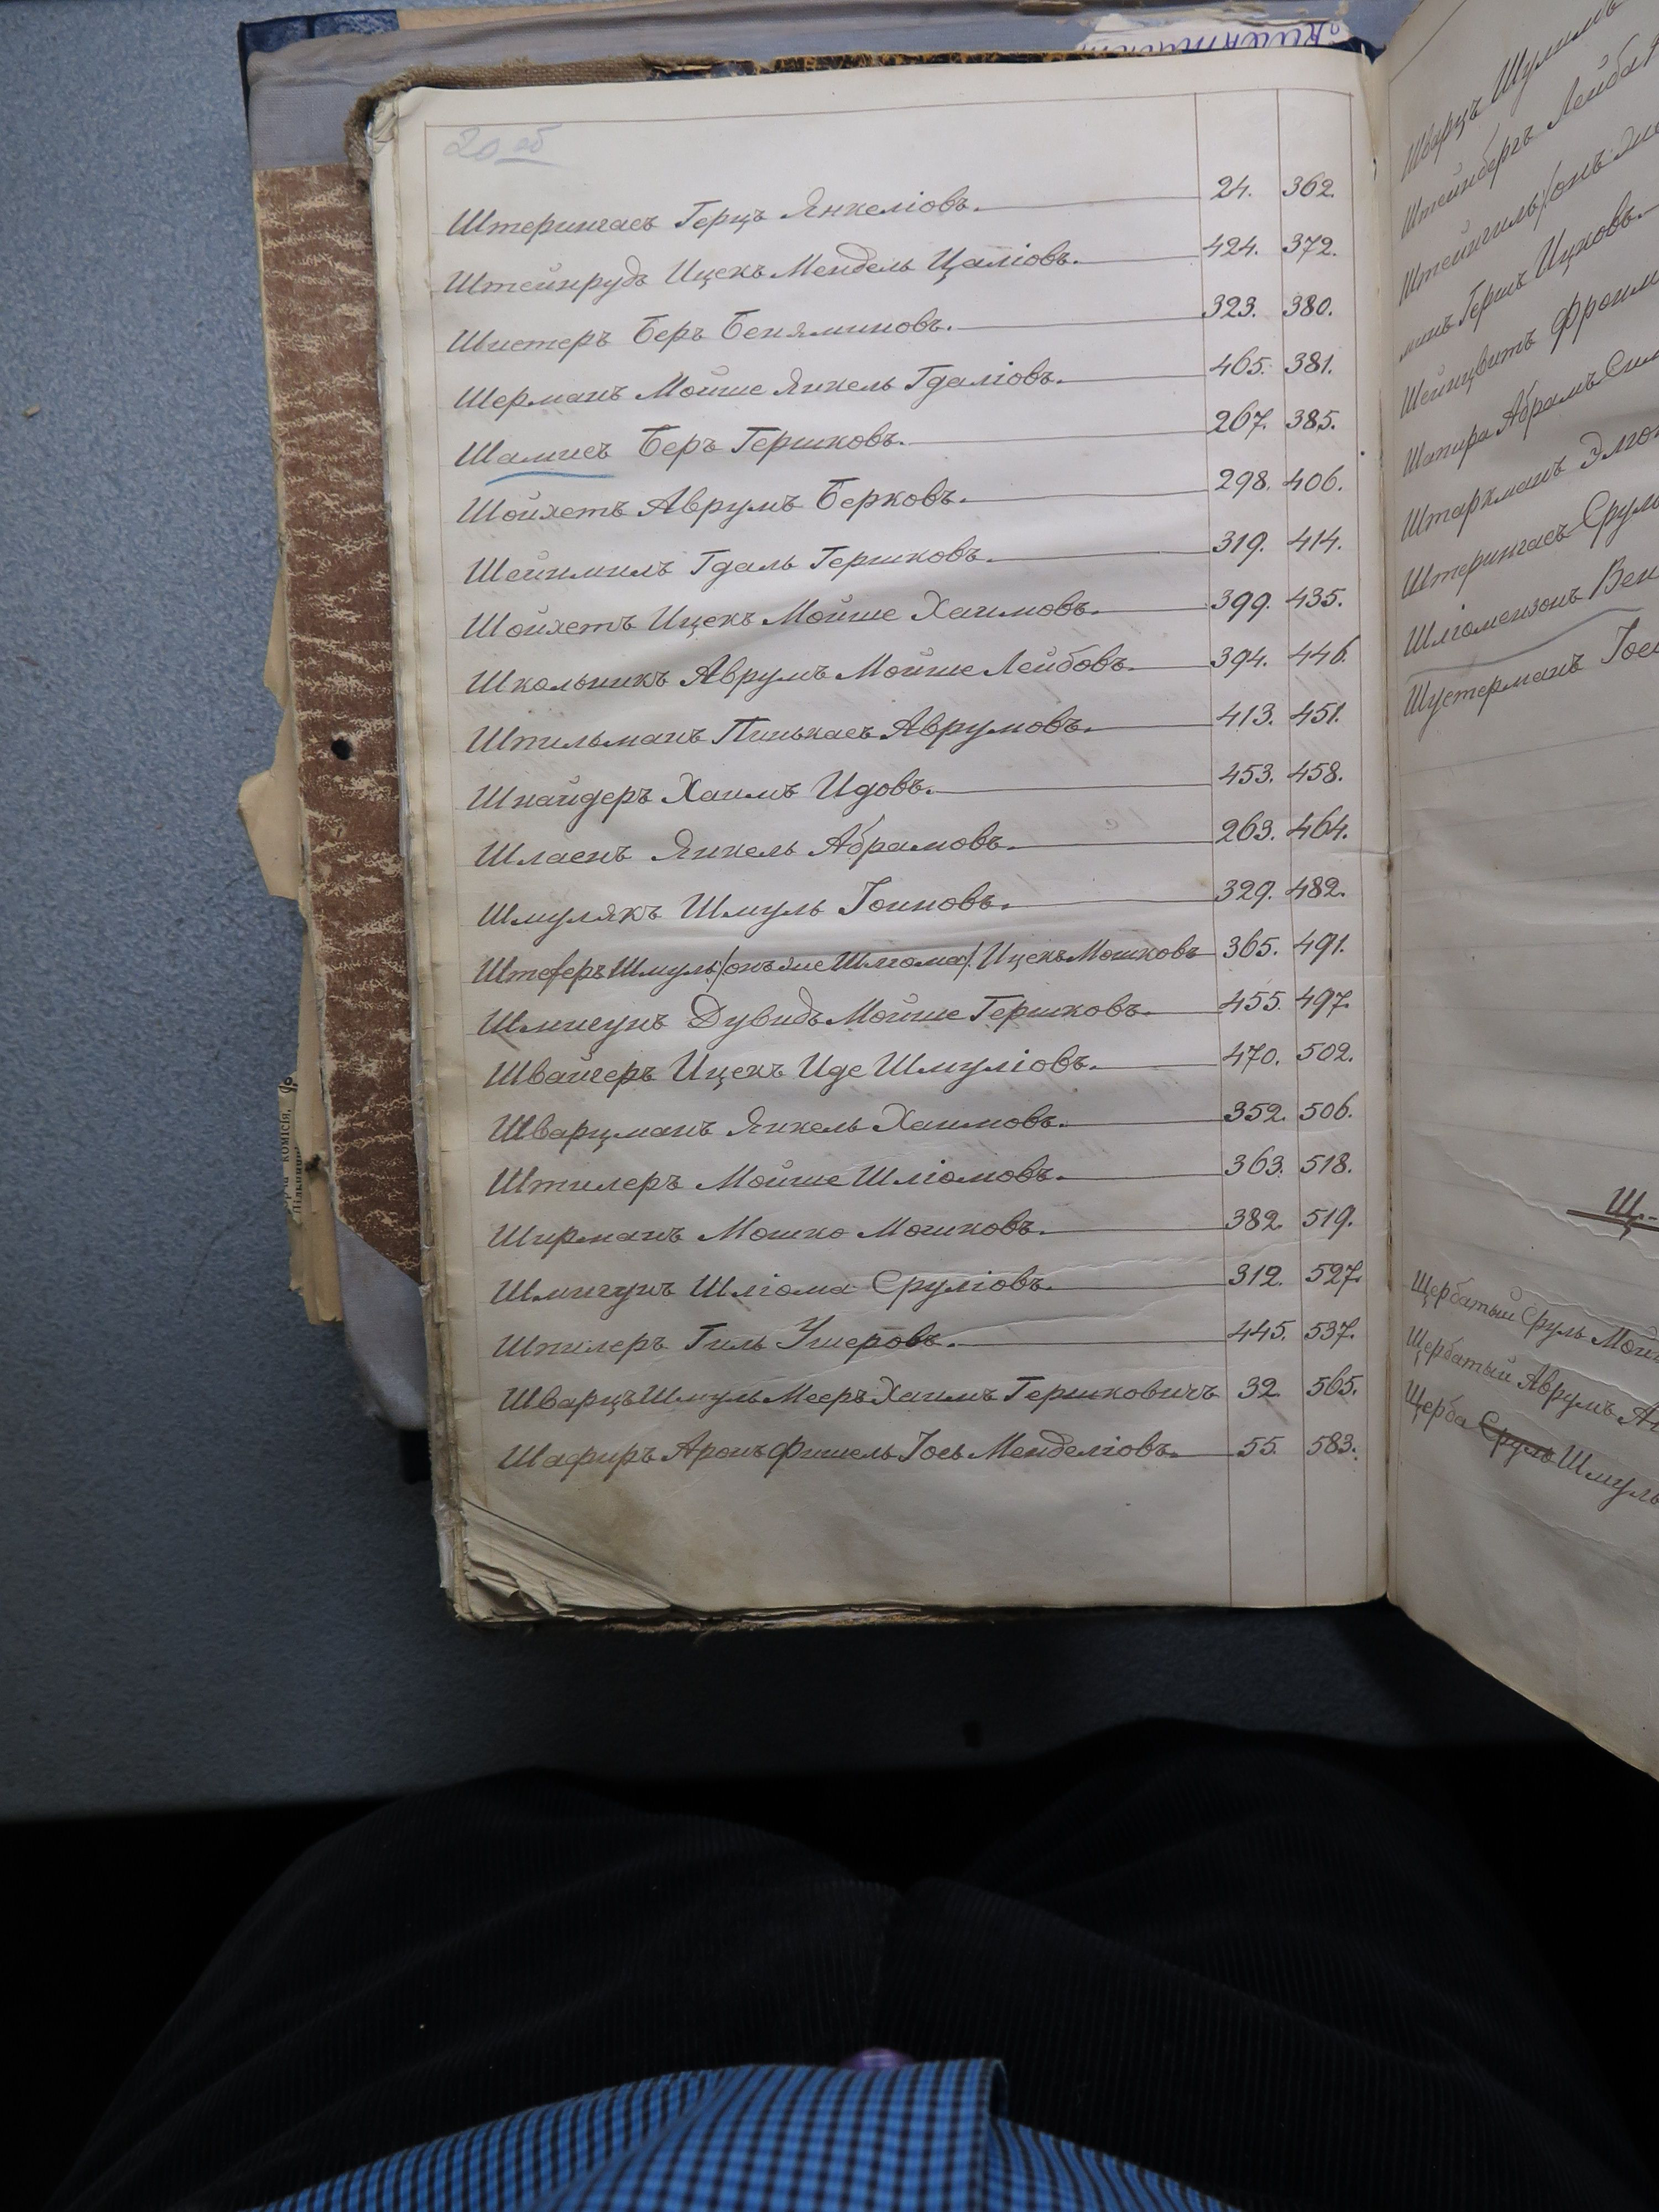 20 об
Штерингасъ Герцъ Янкеліовъ. 24. 362.
Штейнрудъ Ицекъ Мендель Цаліовъ. 424. 372.
Швистеръ Беръ Беняминовъ. 323. 380.
Шерманъ Мойше Янкель Гдаліовъ. 465. 381.
Шамисъ Беръ Гершковъ. 267. 385.
Шойхетъ Аврумъ Берковъ. 298. 406.
Гдаль Гершковъ. 319. 414.
Шойхетъ Ицекъ Мойше Хаимовъ. 399. 435.
Школьникъ Аврумъ Мойше Лейбовъ. 394. 446.
Штильманъ Пинькасъ Аврумовъ. 413. 451.
Шнайдеръ Хаимъ Идовъ. 453. 458.
Шлаенъ Янкель Абрамовъ. 263. 464.
Шмулякъ Шмуль Іоиновъ. 329. 482.
Штеферъ Шмуль /онъ же Шліома/ Ицекъ Мошковъ 365. 491.
Дувидъ Мойше Гершковъ. 455. 497.
Швайгеръ Ицекъ Иде Шмуліовъ. 470. 502.
Шварцманъ Янкель Хаимовъ. 352. 506.
Штилеръ Мойше Шліомовъ. 363. 518.
Ширманъ Мошко Мошковъ. 382. 519.
Шмигунъ Шліома Сруліовъ. 312. 527.
Шпилеръ Гиль Ушеровъ. 445. 537.
Шварцъ Шмуль Мееръ Хаимъ Гершковичъ 32. 565.
Шафиръ Аронъ Фишель Іось Менделіовъ. 55. 583.
Шварцъ Шулимъ
Штейнбергъ Лейба
Штейнгиль /онъ же
Герцъ Ицковъ.
Шейнцвитъ Фроим
Шапира Абрамъ
Штаркманъ
Штерингасъ Сруль
Шліомензонъ Вен
Шустерманъ Іос
Щ.
Щербатый Сруль Мой
Щербатый Аврумъ
Щерба Сруль Шмуль
комісія,